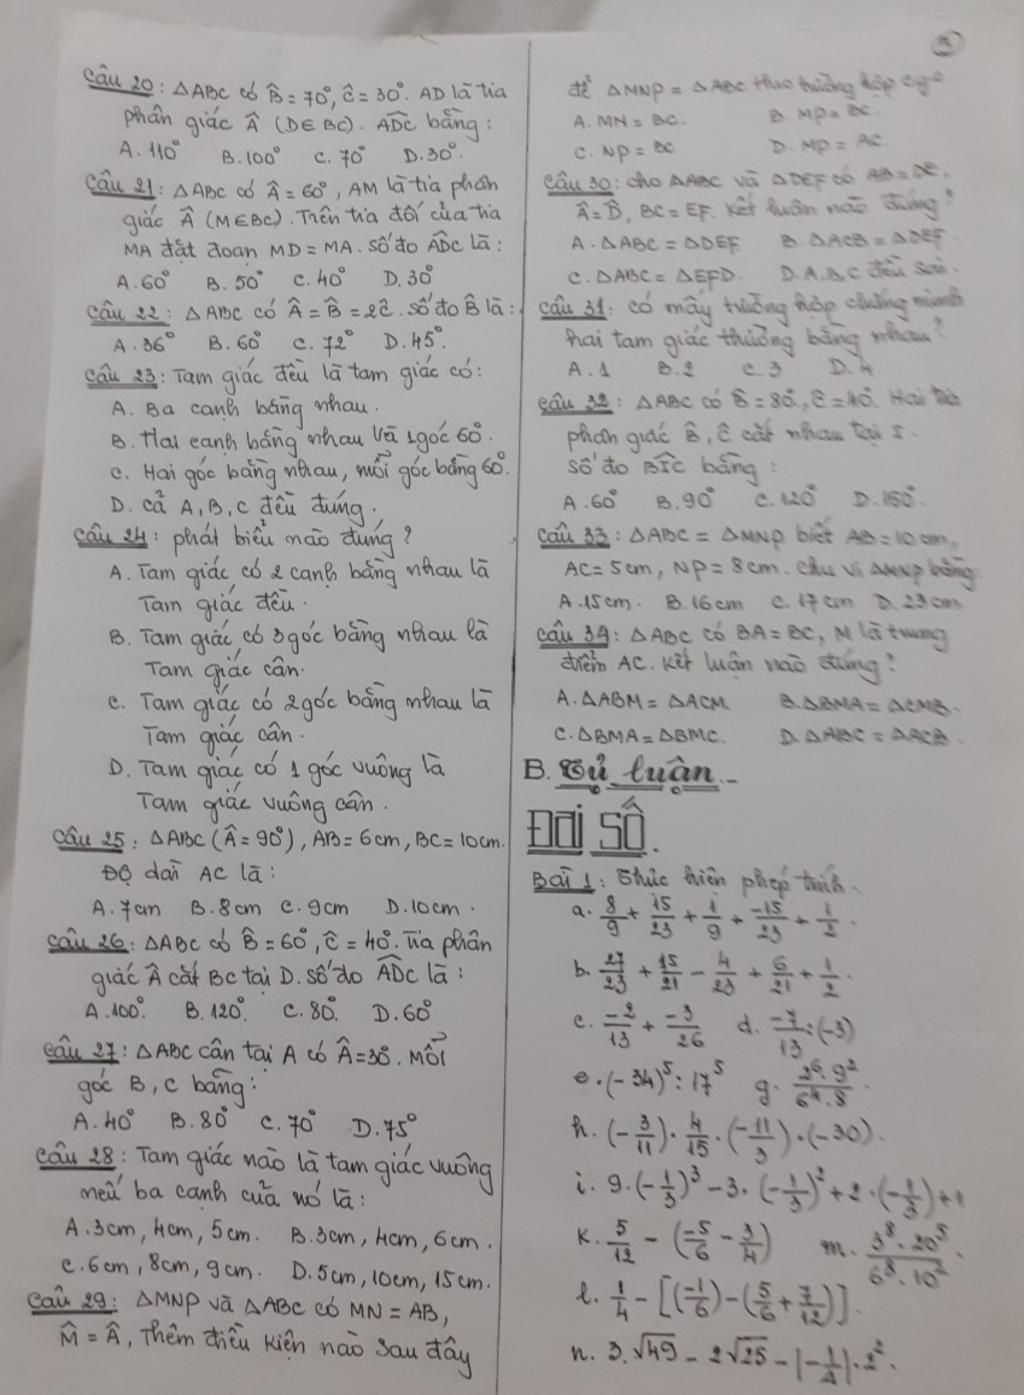 Câu 20: ΔABC có B̂ = 70°, Ĉ = 30°. AD là tia
phân giác Â (D∈ BC). ADC bằng:
A. 110° B. 100° C. 70° D. 30°.
Câu 21: ΔABC có Â = 60°, AM là tia phân
giác Â (M∈BC). Trên tia đối của tia
MA đặt đoạn MD = MA. Số đo ADC là:
A. 60° B. 50° C. 40° D. 30°
Câu 22: ΔABC có Â = B̂ = 2Ĉ. số đo B̂ là:
A. 36° B. 60° C. 72° D. 45°.
Câu 23: Tam giác đều là tam giác có:
A. Ba cạnh bằng nhau.
B. Hai cạnh bằng nhau và 1 góc 60°.
C. Hai góc bằng nhau, mỗi góc bằng 60°.
D. cả A, B, C đều đúng.
Câu 24: phát biểu nào đúng?
A. Tam giác có 2 cạnh bằng nhau là
Tam giác đều.
B. Tam giác có 3 góc bằng nhau là
Tam giác cân.
C. Tam giác có 2 góc bằng nhau là
Tam giác cân.
D. Tam giác có 1 góc vuông là
Tam giác vuông cân.
Câu 25: ΔABC (Â = 90°), AB = 6cm, BC = 10cm.
Độ dài AC là:
A. 7cm B. 8cm C. 9cm D. 10cm.
Câu 26: ΔABC có B̂ = 60°, Ĉ = 40°. Tia phân
giác Â cắt BC tại D. số đo ADC là:
A. 100°. B. 120°. C. 80°. D. 60°
Câu 27: ΔABC cân tại A có Â = 30°. Mỗi
góc B, C bằng:
A. 40° B. 80° C. 70° D. 75°
Câu 28: Tam giác nào là tam giác vuông
nếu ba cạnh của nó là:
A. 3cm, 4cm, 5cm. B. 3cm, 4cm, 6cm.
C. 6cm, 8cm, 9cm. D. 5cm, 10cm, 15cm.
Câu 29: ΔMNP và ΔABC có MN = AB,
M̂ = Â, Thêm điều kiện nào sau đây
để ΔMNP = ΔABC theo trường hợp cgc
A. MN = BC. B. MP = BC.
C. NP = BC D. MP = AC.
Câu 30: cho ΔABC và ΔDEF có AB = DE,
Â = D̂, BC = EF. Kết luận nào đúng?
A. ΔABC = ΔDEF B. ΔACB = ΔDEF.
C. ΔABC = ΔEFD. D. A, B, C đều sai.
Câu 31: có mấy trường hợp chứng minh
hai tam giác thường bằng nhau?
A. 1 B. 2 C. 3 D. 4.
Câu 32: ΔABC có B̂ = 80°, Ĉ = 40°. Hai tia
phân giác B̂, Ĉ cắt nhau tại I.
số đo BIC bằng:
A. 60° B. 90° C. 120° D. 150°.
Câu 33: ΔABC = ΔMNP biết AB = 10cm,
AC = 5cm, NP = 8cm. Chu vi ΔMNP bằng
A. 15cm. B. 16cm C. 17cm D. 23cm
Câu 34: ΔABC có BA = BC, M là trung
điểm AC. Kết luận nào đúng?
A. ΔABM = ΔACM. B. ΔBMA = ΔCMB.
C. ΔBMA = ΔBMC. D. ΔABC = ΔACB.
B. Tự luận.
ĐẠI SỐ.
Bài 1: Thực hiện phép tính.
a. 8/9 + 15/23 + 1/9 + -15/23 + 1/2.
b. 27/23 + 15/21 - 4/23 + 6/21 + 1/2.
c. -2/13 + -3/26 d. -7/13 : (-3)
e. (-34)⁵ : 17⁵ g. 2⁶.9²/6⁴.8.
h. (-3/11) . 4/15 . (-11/3) . (-30).
i. 9.(-1/3)³ - 3.(-1/3)² + 2.(-1/3) + 1
k. 5/12 - (-5/6 - 3/4) m. 3⁸.20⁵/6⁸.10².
l. 1/4 - [(-1/6) - (5/6 + 7/12)].
n. 3.√49 - 2√25 - |-1/4|.2².